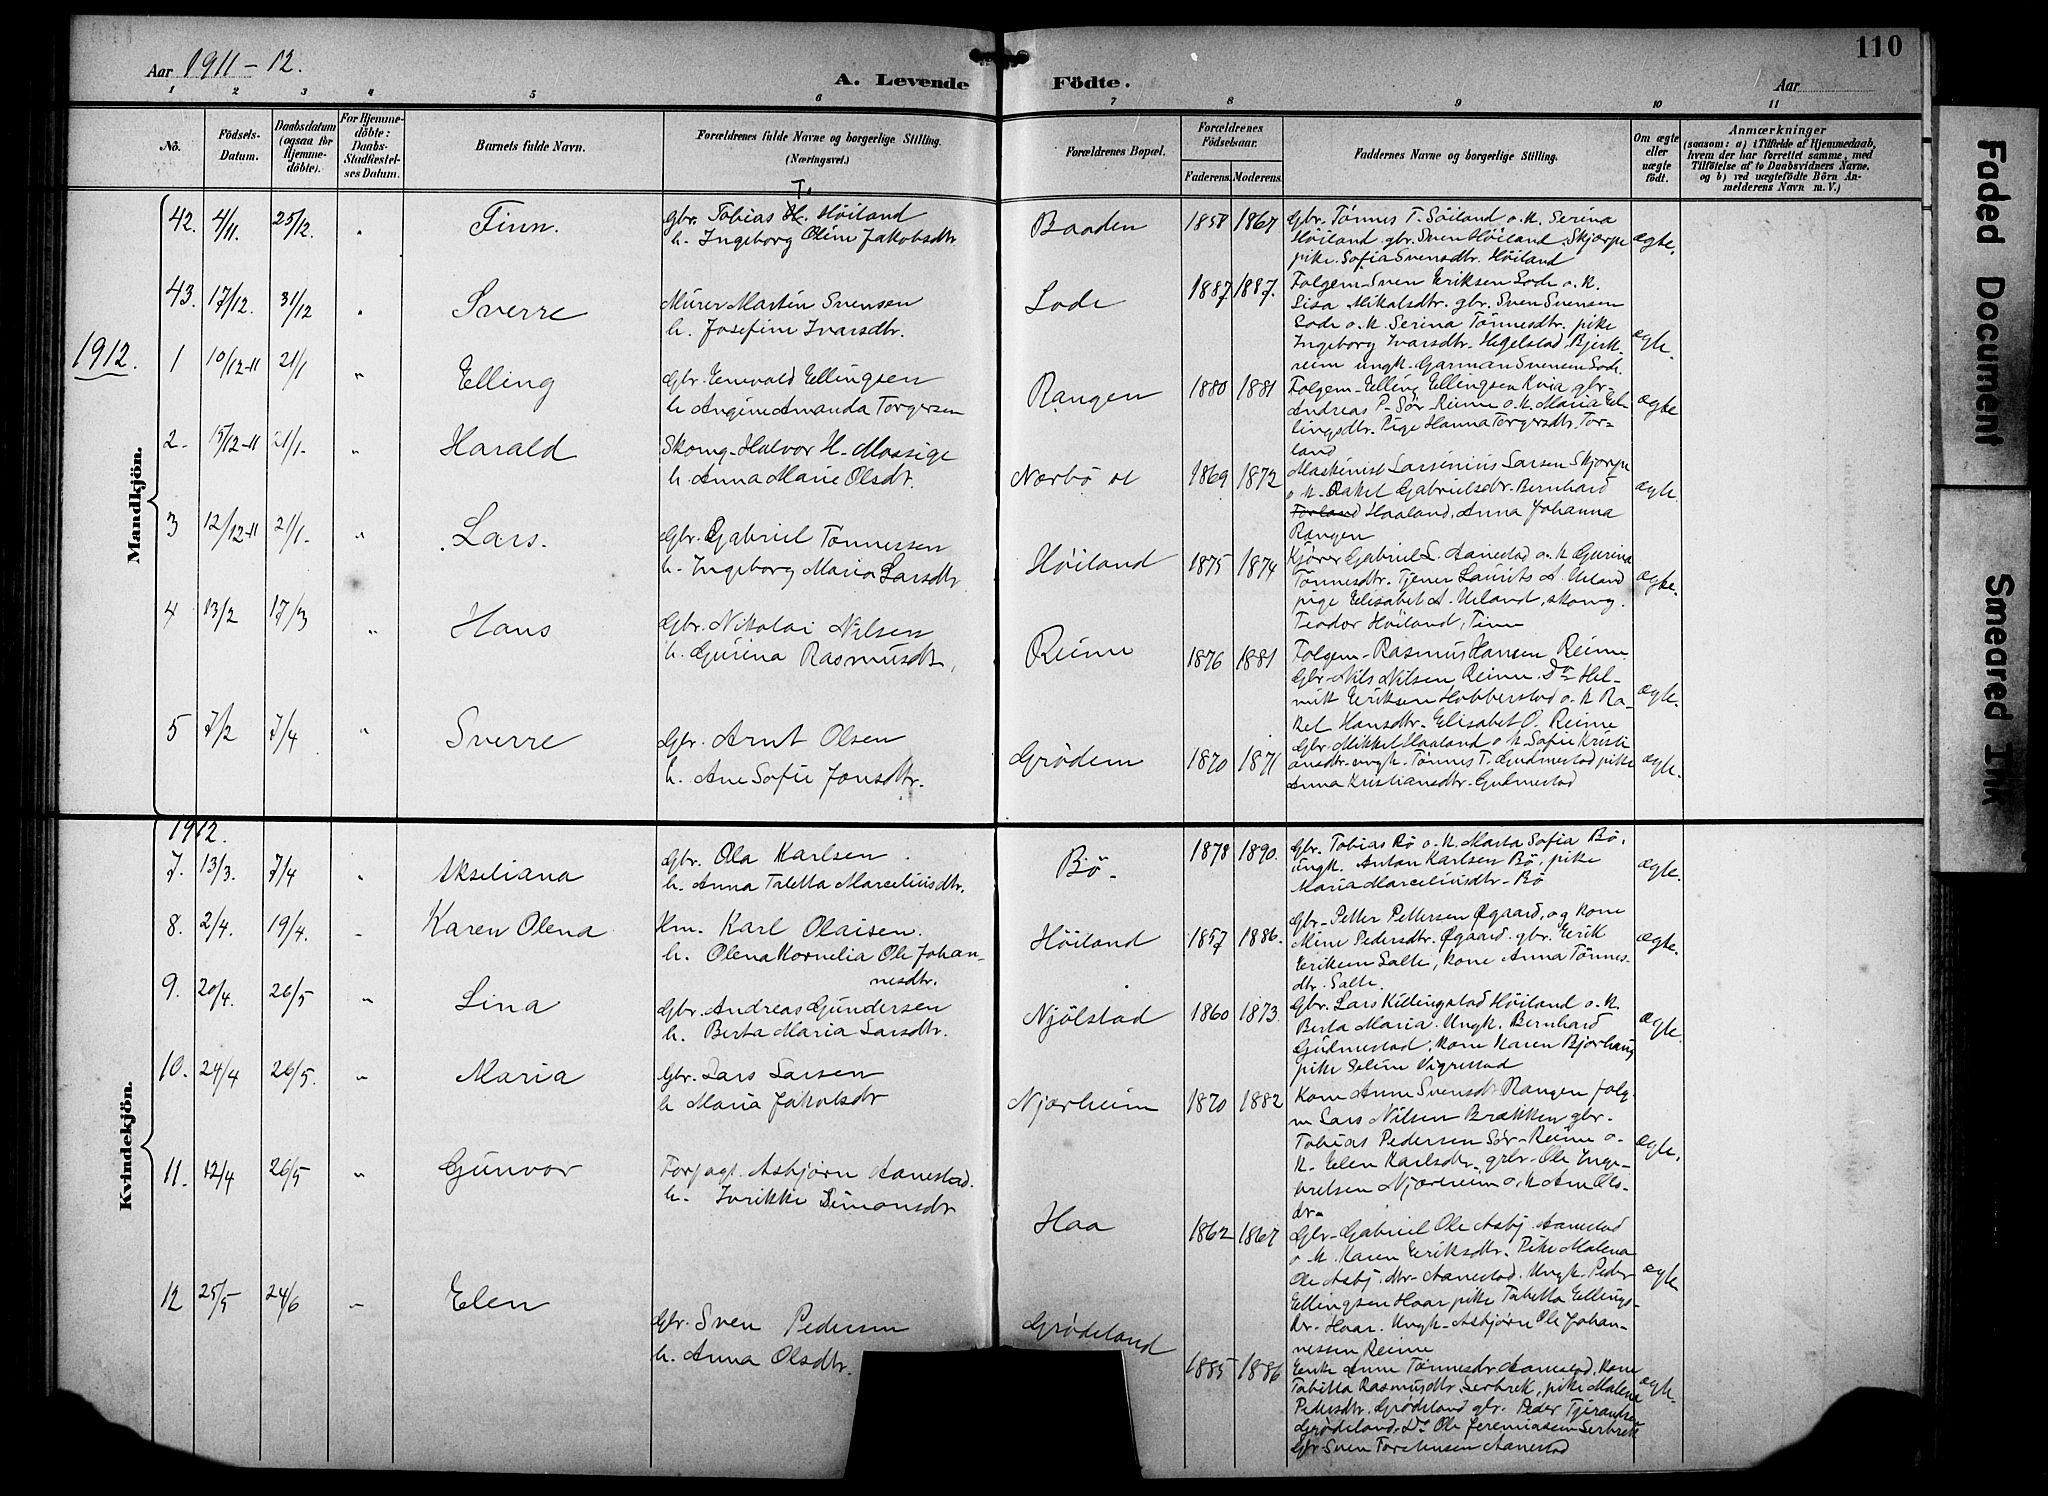 110
Aar 1911-12.
A. Levende Födte.
Aar
1 2 3 4 5 6 7 8 9 10 11
Nô. Födsels-Datum. Daabsdatum (ogsaa for Hjemmedöbte). For Hjemmedöbte: Daabs-Stadfæstelses Datum. Barnets fulde Navn. Forældrenes fulde Navne og borgerlige Stilling. (Næringsvei.) Forældrenes Bopæl. Forældrenes Födselsaar. Faderens. Moderens. Faddernes Navne og borgerlige Stilling. Om ægte eller uægte födt. Anmærkninger (saasom: a) i Tilfælde af Hjemmedaab, hvem der har forrettet samme, med Tilföielse af to Daabsvidners Navne, og b) ved uægtefödte Börn Anmelderens Navn m. V.)
Mandkjön.
42. 4/11. 25/12. " Finn. gbr. Tobias T. Höiland
h. Ingeborg Oline Jakobsdtr
Baaden 1858 1867 Gbr. Tönnes T. Söiland o. k. Serina
Höiland. gbr. Sven Höiland, Skjærpe
pike. Sofia Svensdtr. Höiland
ægte.
43. 17/12. 31/12 " Sverre Murer Martin Svensen
h. Josefine Ivarsdtr.
Lode 1887 1887. Folgem. Sven Eriksen Lode o. k.
Lisa Mikalsdtr. gbr. Sven Svensen
Lode o. k. Serina Tönnesdtr. pike
Ingeborg Ivarsdtr. Hegelstad, Bjerk-
reim ungk. Garman Svensen Lode.
ægte.
1912.
1 10/12-11 21/1 " Elling Gbr. Enevald Ellingsen
h. Angine Amanda Torgersen
Rangen 1880 1881 Folgem. Elling Ellingsen Kvia gbr.
Andreas P. Sör-Reime o. k. Maria El-
lingsdtr. Pige Hanna Torgersdtr. Tor-
land
ægte
2. 15/12-11 21/1. " Harald Skomg. Halvor H. Mossige
h. Anna Marie Olsdtr.
Nærbö st 1869 1872 Maskinist Larsinius Larsen Skjærpe
o. k. Rakel Gabrielsdtr. Bernhard
Torland Haaland, Anna Johanna
Rangen
ægte.
3 12/12-11 21/1. " Lars. Gbr. Gabriel Tönnessen
h. Ingeborg Maria Larsdtr.
Höiland 1875 1874 Kjörer Gabriel L. Aanestad o. k. Gurina
Tönnesdtr. Tjener Laurits A. Ueland
pige Elisabet A. Ueland, skomg.
Teodor Höiland, Time
ægte.
4 13/2 17/3 " Hans Gbr. Nikolai Nilsen
h. Gurina Rasmusdtr.
Reime 1876 1881 Folgem. Rasmus Hansen Reime
Gbr. Nils Nilsen Reime. Do Hel-
mik Eriksen Hobberstad o. k. Ra-
kel Hansdtr. Elisabet O. Reime
ægte.
5 7/2 7/4 " Sverre Gbr. Arnt Olsen
h. Ane Sofie Jonsdtr.
Grödem 1870 1871 Gbr. Mikkel Haaland o. k. Sofie Kristi
ansdtr. ungk. Tönnes T. Gudmestad pike
Anna Kristiansdtr. Gudmestad
ægte.
Kvindekjön.
1912.
7. 13/3. 7/4 " Akseliana Gbr. Ola Karlsen
h. Anna Taletta Marceliusdtr.
Bö. 1878 1890. Gbr. Tobias Bö o. k. Marta Sofia Bö.
ungk. Anton Karlsen Bö, pike
Maria Marceliusdtr. Bö
ægte.
8. 2/4. 19/4. " Karen Olena Hm. Karl Olaisen.
h. Olena Kornelia Ole Johan-
nesdtr.
Höiland 1857 1886. Gbr. Petter Pettersen Øgaard, og kone
Mine Pedersdtr. Øgaard. gbr. Erik
Eriksen Salte, kone Anna Tönnes-
dtr. Salte.
ægte.
9. 20/4. 26/5 " Lina Gbr. Andreas Gundersen
h. Berta Maria Larsdtr.
Njölstad 1860 1873. Gbr. Lars Killingstad Höiland o. k.
Berta Maria. Ungk. Bernhard
Gudmestad, kone Karen Bjorhaug
pike Seline Vigrestad
ægte.
10. 24/4 26/5. " Maria Gbr. Lars Larsen
h Maria Jakobsdtr
Njærheim 1870 1882 Kone Anne Svensdtr Rangen folg
m Lars Nilsen Brækken gbr.
Tobias Pedersen Sör-Reime o.
k. Elen Karlsdtr. gbr. Ole Inge-
bretsen Njærheim o. k Ane Ols-
dtr.
ægte.
11. 12/4 26/5 " Gunvor Forpagt. Asbjörn Aanestad.
h. Inrikke Simonsdtr
Haa 1862 1867 Gbr. Gabriel Ole Asbj. Aanestad
o. k. Karen Eriksdtr. Pike Malena
Ole Asbj. dtr. Aanestad. Ungk. Peder
Ellingsen Haar pike Tabitta Ellings-
dtr. Haar. Ungk. Asbjörn Ole Johan-
nessen Reime
ægte
12 25/5 24/6 " Elen Gbr. Sven Pedersen
h. Anna Olsdtr.
Grödeland 1885 1886 Enke Anne Tönnesdtr Aanestad, kone
Tabitta Rasmusdtr. Serbrek, pike Malena
Pedersdtr. Grödeland gbr. Peder Tjerandsen
Grödeland. Do Ole Jeremiassen Serbrek
Gbr Sven Torstensen Aanestad
ægte.
Faded Document
Smeared Ink